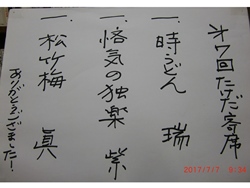 才7回たけだ寄席
一、時うどん 瑞
一、悋気の独楽 紫
一、松竹梅 眞
ありがとうございました!
2017/7/7